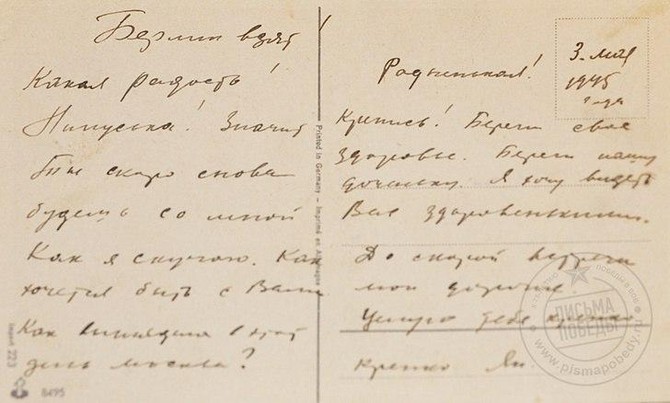 Берлин взят!
Какая радость!
Нинуська! Значит
Ты скоро снова
будешь со мной
Как я скучаю. Как
хочется быть с Вами
Как выглядела в этот
день москва?
Printed in Germany — Imprimé en Allemagne
Import 223
8495
3. мая
1945
года
Родненькая!
Крепись! Береги свое
здоровье. Береги нашу
доченьку. Я хочу видеть
Вас здоровенькими.
До скорой встречи
мои дорогие
Целую тебя крепко
крепко Ян.
ПИСЬМА
ПОБЕДЫ
www.pismapobedy.ru